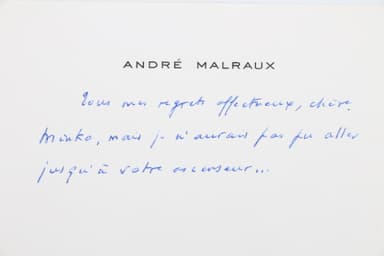 ANDRÉ MALRAUX
Tous mes regrets affectueux, chère
Minko, mais je n'aurais pas pu aller
jusqu'à votre ascenseur...